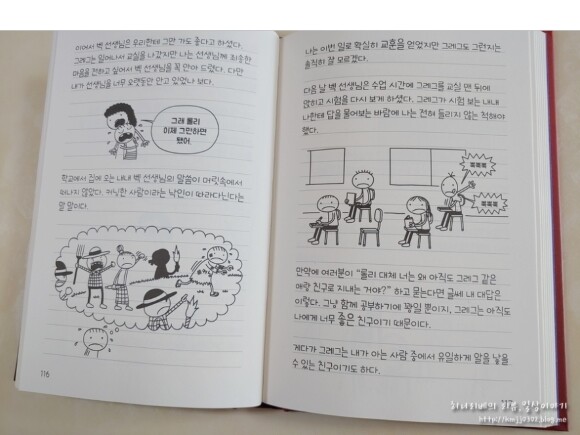 이어서 벅 선생님은 우리한테 그만 가도 좋다고 하셨다.
그레그는 일어나서 교실을 나갔지만 나는 선생님께 죄송한
마음을 전하고 싶어서 벅 선생님을 꼭 안아 드렸다. 다만
내가 선생님을 너무 오랫동안 안고 있었나 보다.
그래 롤리
이제 그만하면
됐어.
학교에서 집에 오는 내내 벅 선생님의 말씀이 머릿속에서
떠나지 않았다. 커닝한 사람이라는 낙인이 따라다닌다는
말 말이다.
116
나는 이번 일로 확실히 교훈을 얻었지만 그레그도 그런지는
솔직히 잘 모르겠다.
다음 날 벅 선생님은 수업 시간에 그레그를 교실 맨 뒤에
앉히고 시험을 다시 보게 하셨다. 그레그가 시험 보는 내내
나한테 답을 물어보는 바람에 나는 전혀 들리지 않는 척해야
했다.
쪽쪽쪽
쪽쪽쪽
만약에 여러분이 “롤리 대체 너는 왜 아직도 그레그 같은
애랑 친구로 지내는 거야?” 하고 묻는다면 글쎄 내 대답은
이렇다. 그냥 함께 공부하기에 꽝일 뿐이지, 그레그는 아직도
나에게 너무 좋은 친구이기 때문이다.
게다가 그레그는 내가 아는 사람 중에서 유일하게 알을 낳을
수 있는 친구이기도 하다.